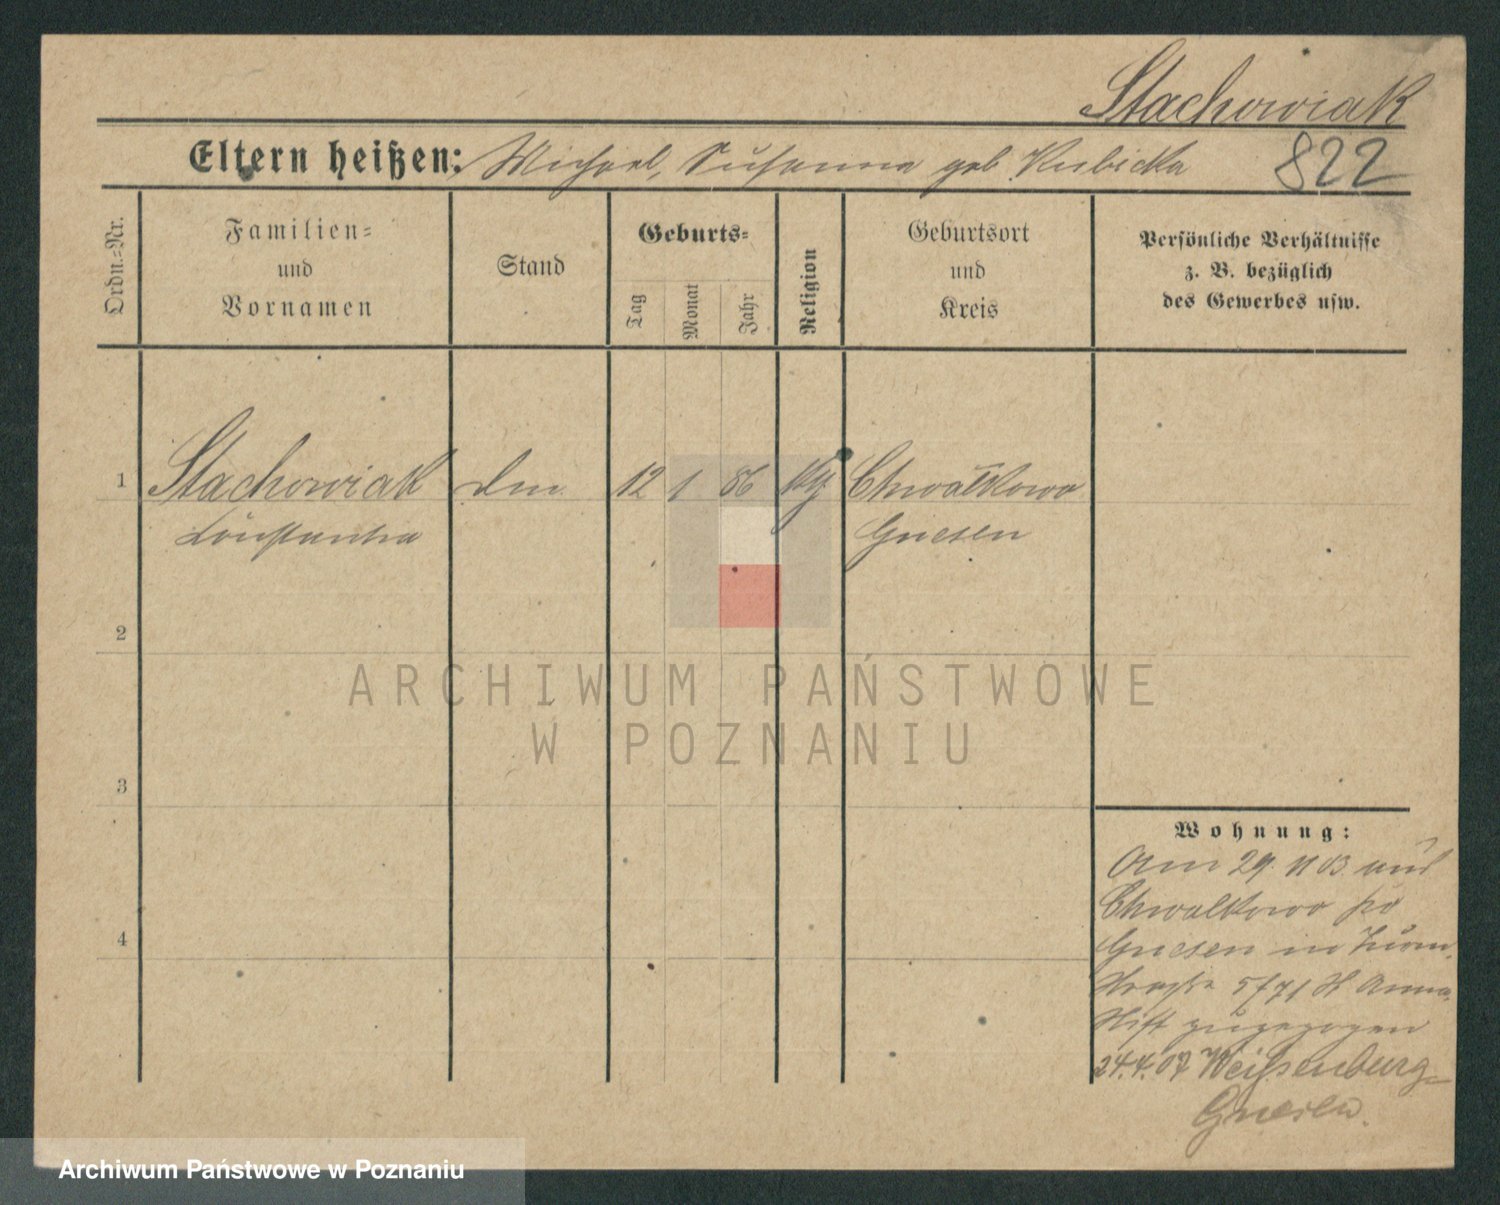 Stachowiak
Eltern heißen: Michael, Susanna geb Kubicka 822
Ordn.=Nr.
Familien=
und
Vornamen
Stand
Geburts=
Tag
Monat
Jahr
Religion
Geburtsort
und
Kreis
Persönliche Verhältnisse
z. B. bezüglich
des Gewerbes usw.
1 Stachowiak 12 1 86 Chwałkowo
Constantia Gnesen
2
3
4
Wohnung:
Am 29. 11 03. aus
Chwalkowo
Gnesen in
5/71 Anna
stift zugezogen
24.4.07 Weißenburg
Gnesen.
ARCHIWUM PAŃSTWOWE
W POZNANIU
Archiwum Państwowe w Poznaniu